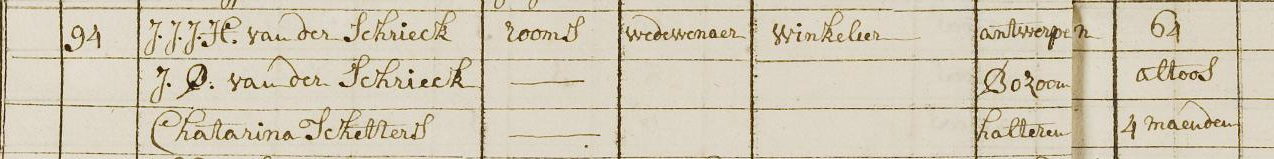 94 J. J. J. H. van der Schrieck rooms wedewenaer Winkelier antwerpen 64
J. D. van der Schrieck — Bozoom altoos
Chatarina Schetters — halteren 4 maenden